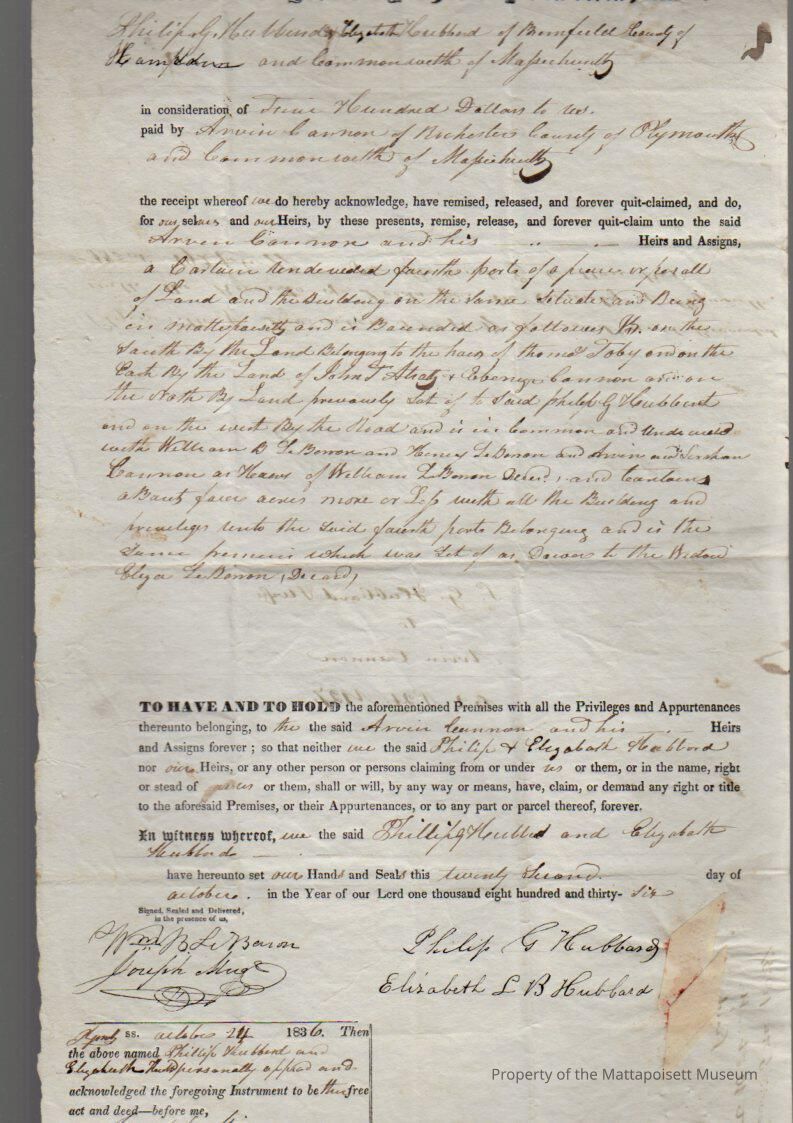 Philip G. Hubbard & Elizabeth Hubbard of Brimfield County of
Hampden and Commonwelth of Massachusetts
in consideration of Four Hundred Dollars to us.
paid by Arvin Cannon of Rochester County of Plymouth
and Commonwelth of Massachusetts
the receipt whereof we do hereby acknowledge, have remised, released, and forever quit-claimed, and do,
for our selves and our Heirs, by these presents, remise, release, and forever quit-claim unto the said
Arvin Cannon and his Heirs and Assigns,
a Certain undevided fourth parts of a peace or parsall
of Land and the Building on the same Situate and Being
in Mattapoisett and is Bounded as followes on the
South By the Land Belonging to the heirs of Toby and on the
East By the Land of John T & Ebenezer Cannon and on
the North By Land previously Set of to Said Philip G Hubbert
and on the west By the Road and is in Common and undevided
with William B LeBaron and LeBaron and Arvin and
Cannon as Heirs of William LeBaron Decd, and Contains
aBout four acres more or Less with all the Building and
priveliges unto the said fourth parts Belonging and is the
same premises which was Set of as Dower to the Widow
Eliza LeBaron, Decd,
TO HAVE AND TO HOLD the aforementioned Premises with all the Privileges and Appurtenances
thereunto belonging, to the the said Arvin Cannon and his Heirs
and Assigns forever ; so that neither we the said Philip & Elizabath Hubbord
nor our Heirs, or any other person or persons claiming from or under us or them, or in the name, right
or stead of or them, shall or will, by any way or means, have, claim, or demand any right or title
to the aforesaid Premises, or their Appurtenances, or to any part or parcel thereof, forever.
In witness whereof, we the said Phillip G Hubbard and Elizabath
Hubbord
have hereunto set our Hands and Seals this twenty Second day of
october. in the Year of our Lord one thousand eight hundred and thirty- six
Signed, Sealed and Delivered,
in the presence of us,
Wm B LeBaron
Joseph
Philip G Hubbard
Elizabeth L B Hubbard
ss. october 24 1836. Then
the above named Phillip Hubbert and
Elizabeth personally appeared and
acknowledged the foregoing Instrument to be their free
act and deed—before me,
Property of the Mattapoisett Museum